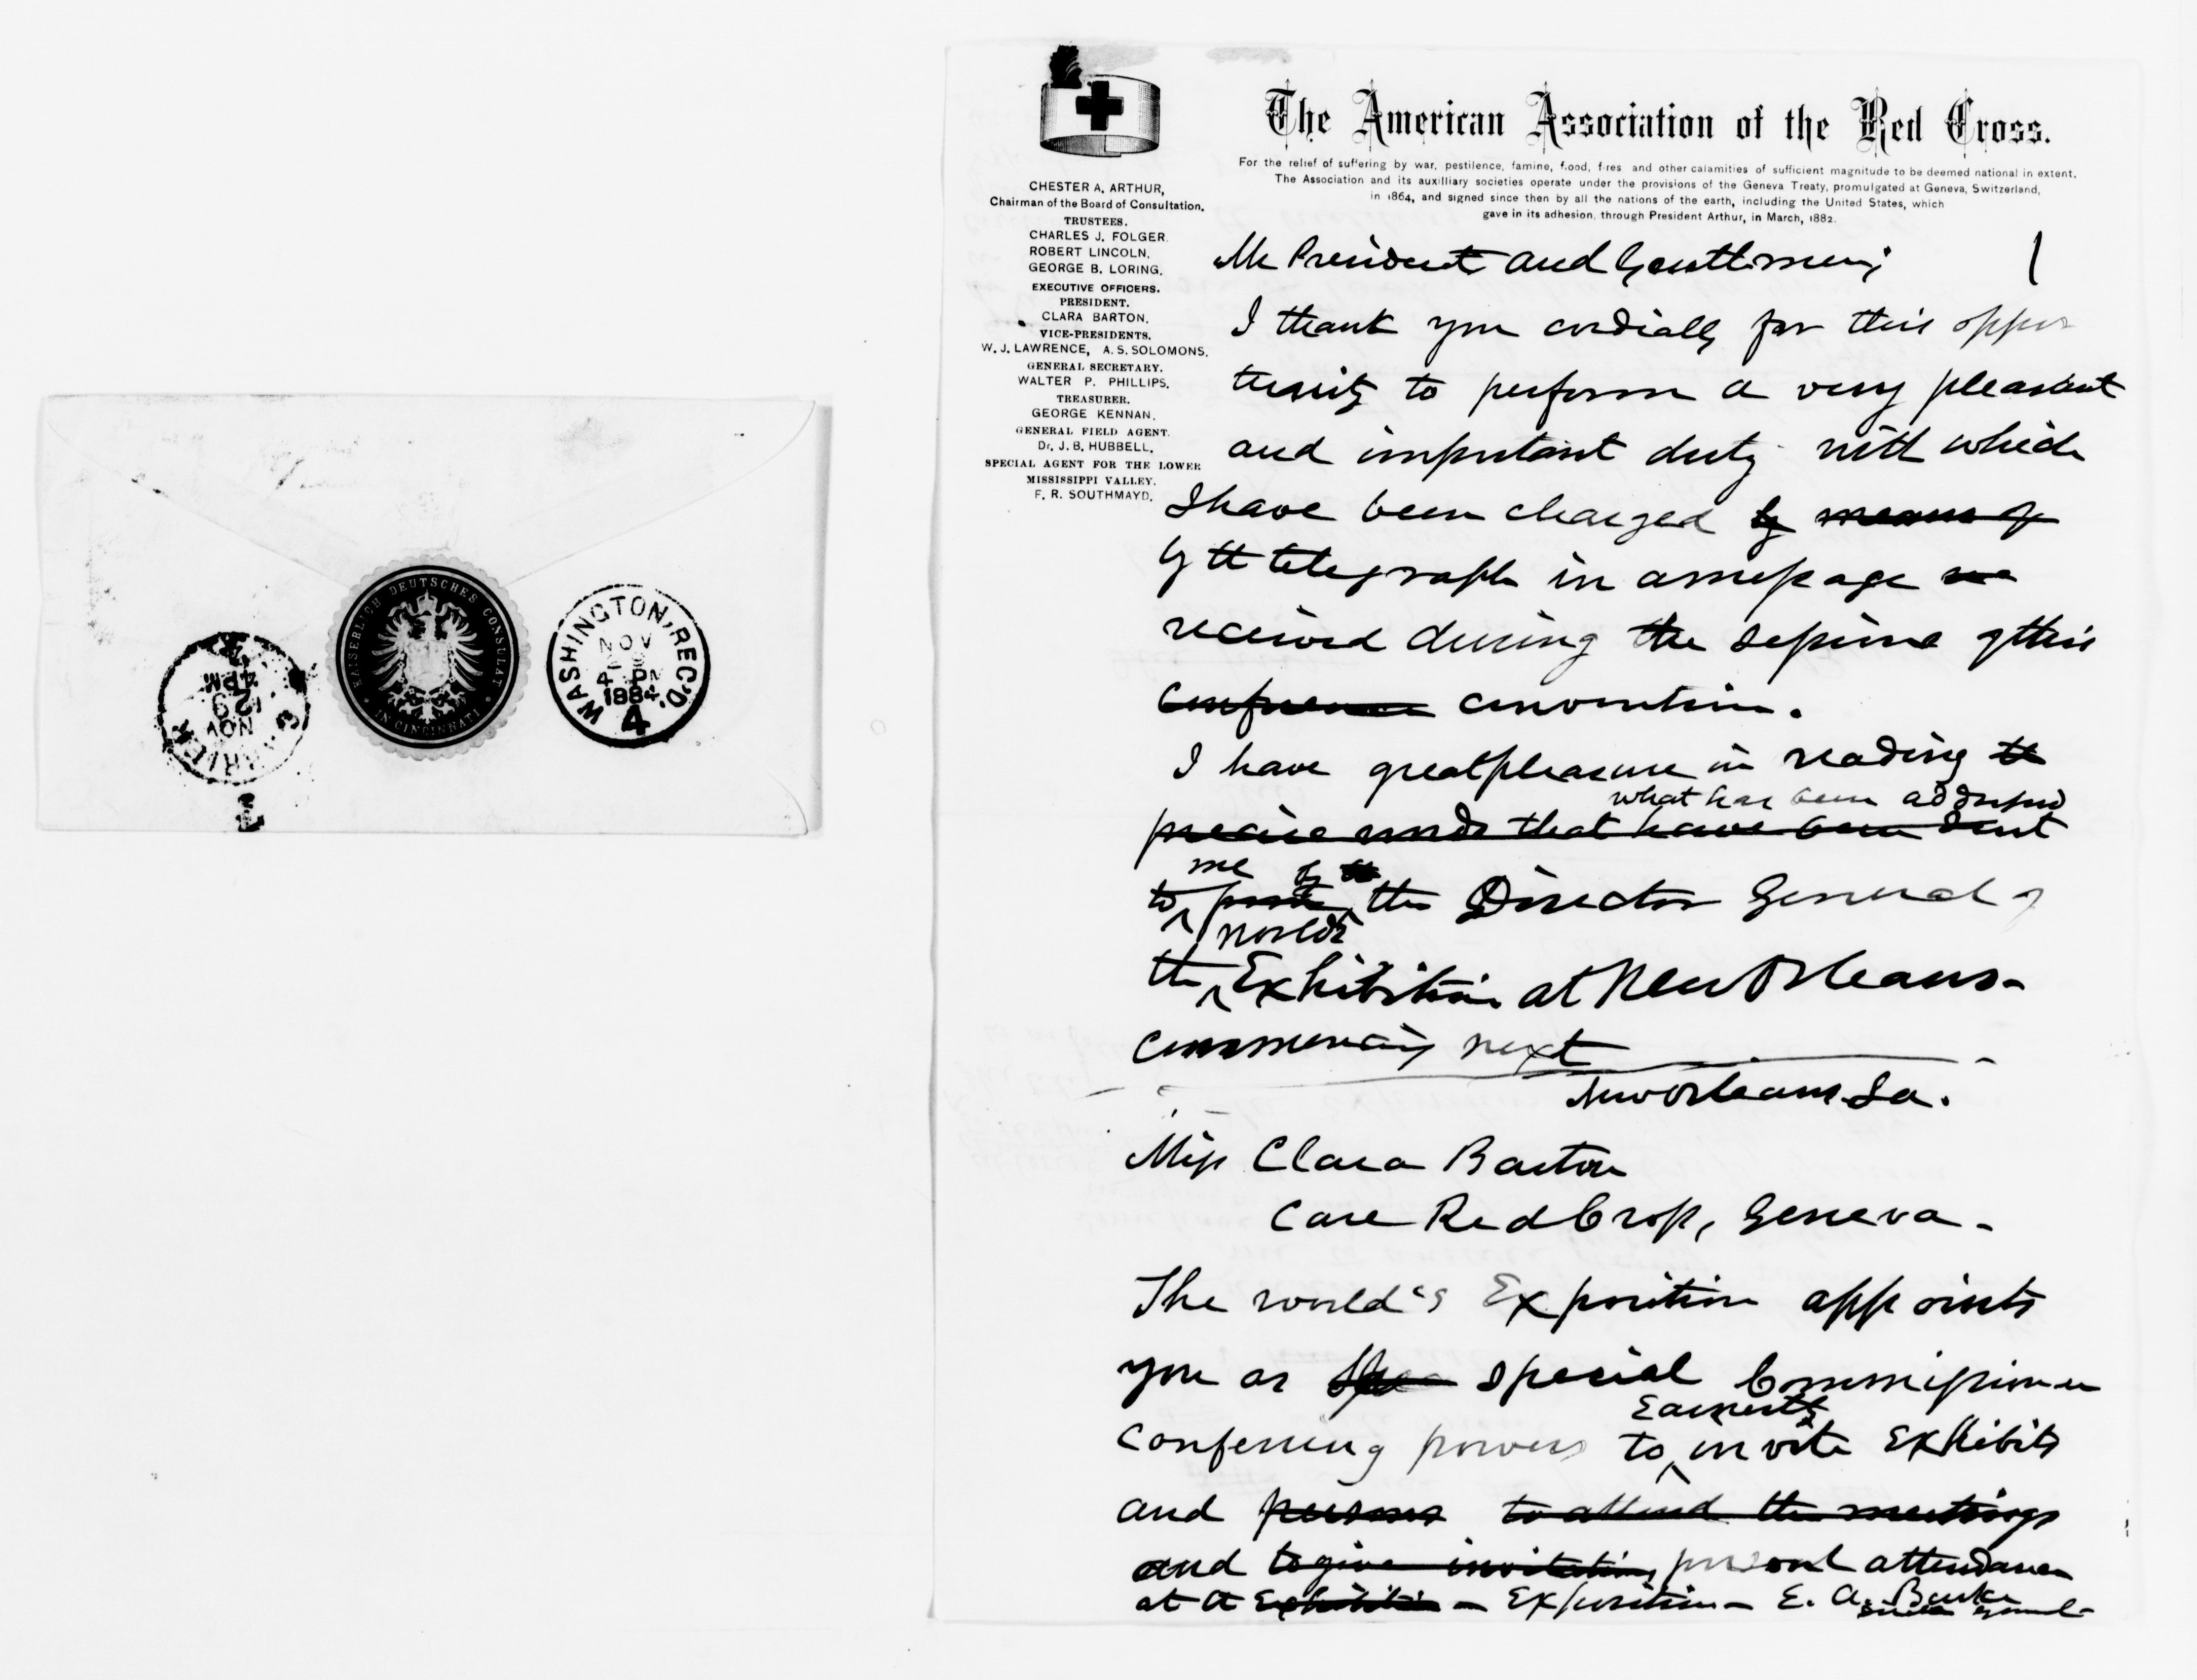 KAISERLICH DEUTSCHES CONSULAT
IN CINCINNATI
WASHINGTON, REC'D.
NOV
4 PM
1884
4
CARRIER
NOV
29
4 PM
The American Association of the Red Cross.
For the relief of suffering by war, pestilence, famine, flood, fires and other calamities of sufficient magnitude to be deemed national in extent.
The Association and its auxilliary societies operate under the provisions of the Geneva Treaty, promulgated at Geneva, Switzerland,
in 1864, and signed since then by all the nations of the earth, including the United States, which
gave in its adhesion, through President Arthur, in March, 1882.
CHESTER A. ARTHUR,
Chairman of the Board of Consultation.
TRUSTEES.
CHARLES J. FOLGER.
ROBERT LINCOLN,
GEORGE B. LORING,
EXECUTIVE OFFICERS.
PRESIDENT.
CLARA BARTON.
VICE-PRESIDENTS.
W. J. LAWRENCE, A. S. SOLOMONS.
GENERAL SECRETARY.
WALTER P. PHILLIPS,
TREASURER.
GEORGE KENNAN.
GENERAL FIELD AGENT.
Dr. J. B. HUBBELL,
SPECIAL AGENT FOR THE LOWER
MISSISSIPPI VALLEY.
F. R. SOUTHMAYD.
1
Mr President and Gentlemen;
I thank you cordially for this oppor
tunity to perform a very pleasant
and important duty with which
I have been charged by means of
by tt telegraph in a message
received during the session of this
Conference convention.
I have great pleasure in reading tt
what has been addressed
precise words that have been sent
me by tt
to the Director General of
world's
the Exhibition at New Orleans-
commencing next
New Orleans La.
Miss Clara Barton
Care Red Cross, Geneva-
The world's Exposition appoints
you as Spe special Commissioner
Earnestly
conferring powers to invite Exhibits
and persons to attend the meetings
and to give invitations personal attendance
at tt Exhibition - Exposition - E. A. Burke
Director General-